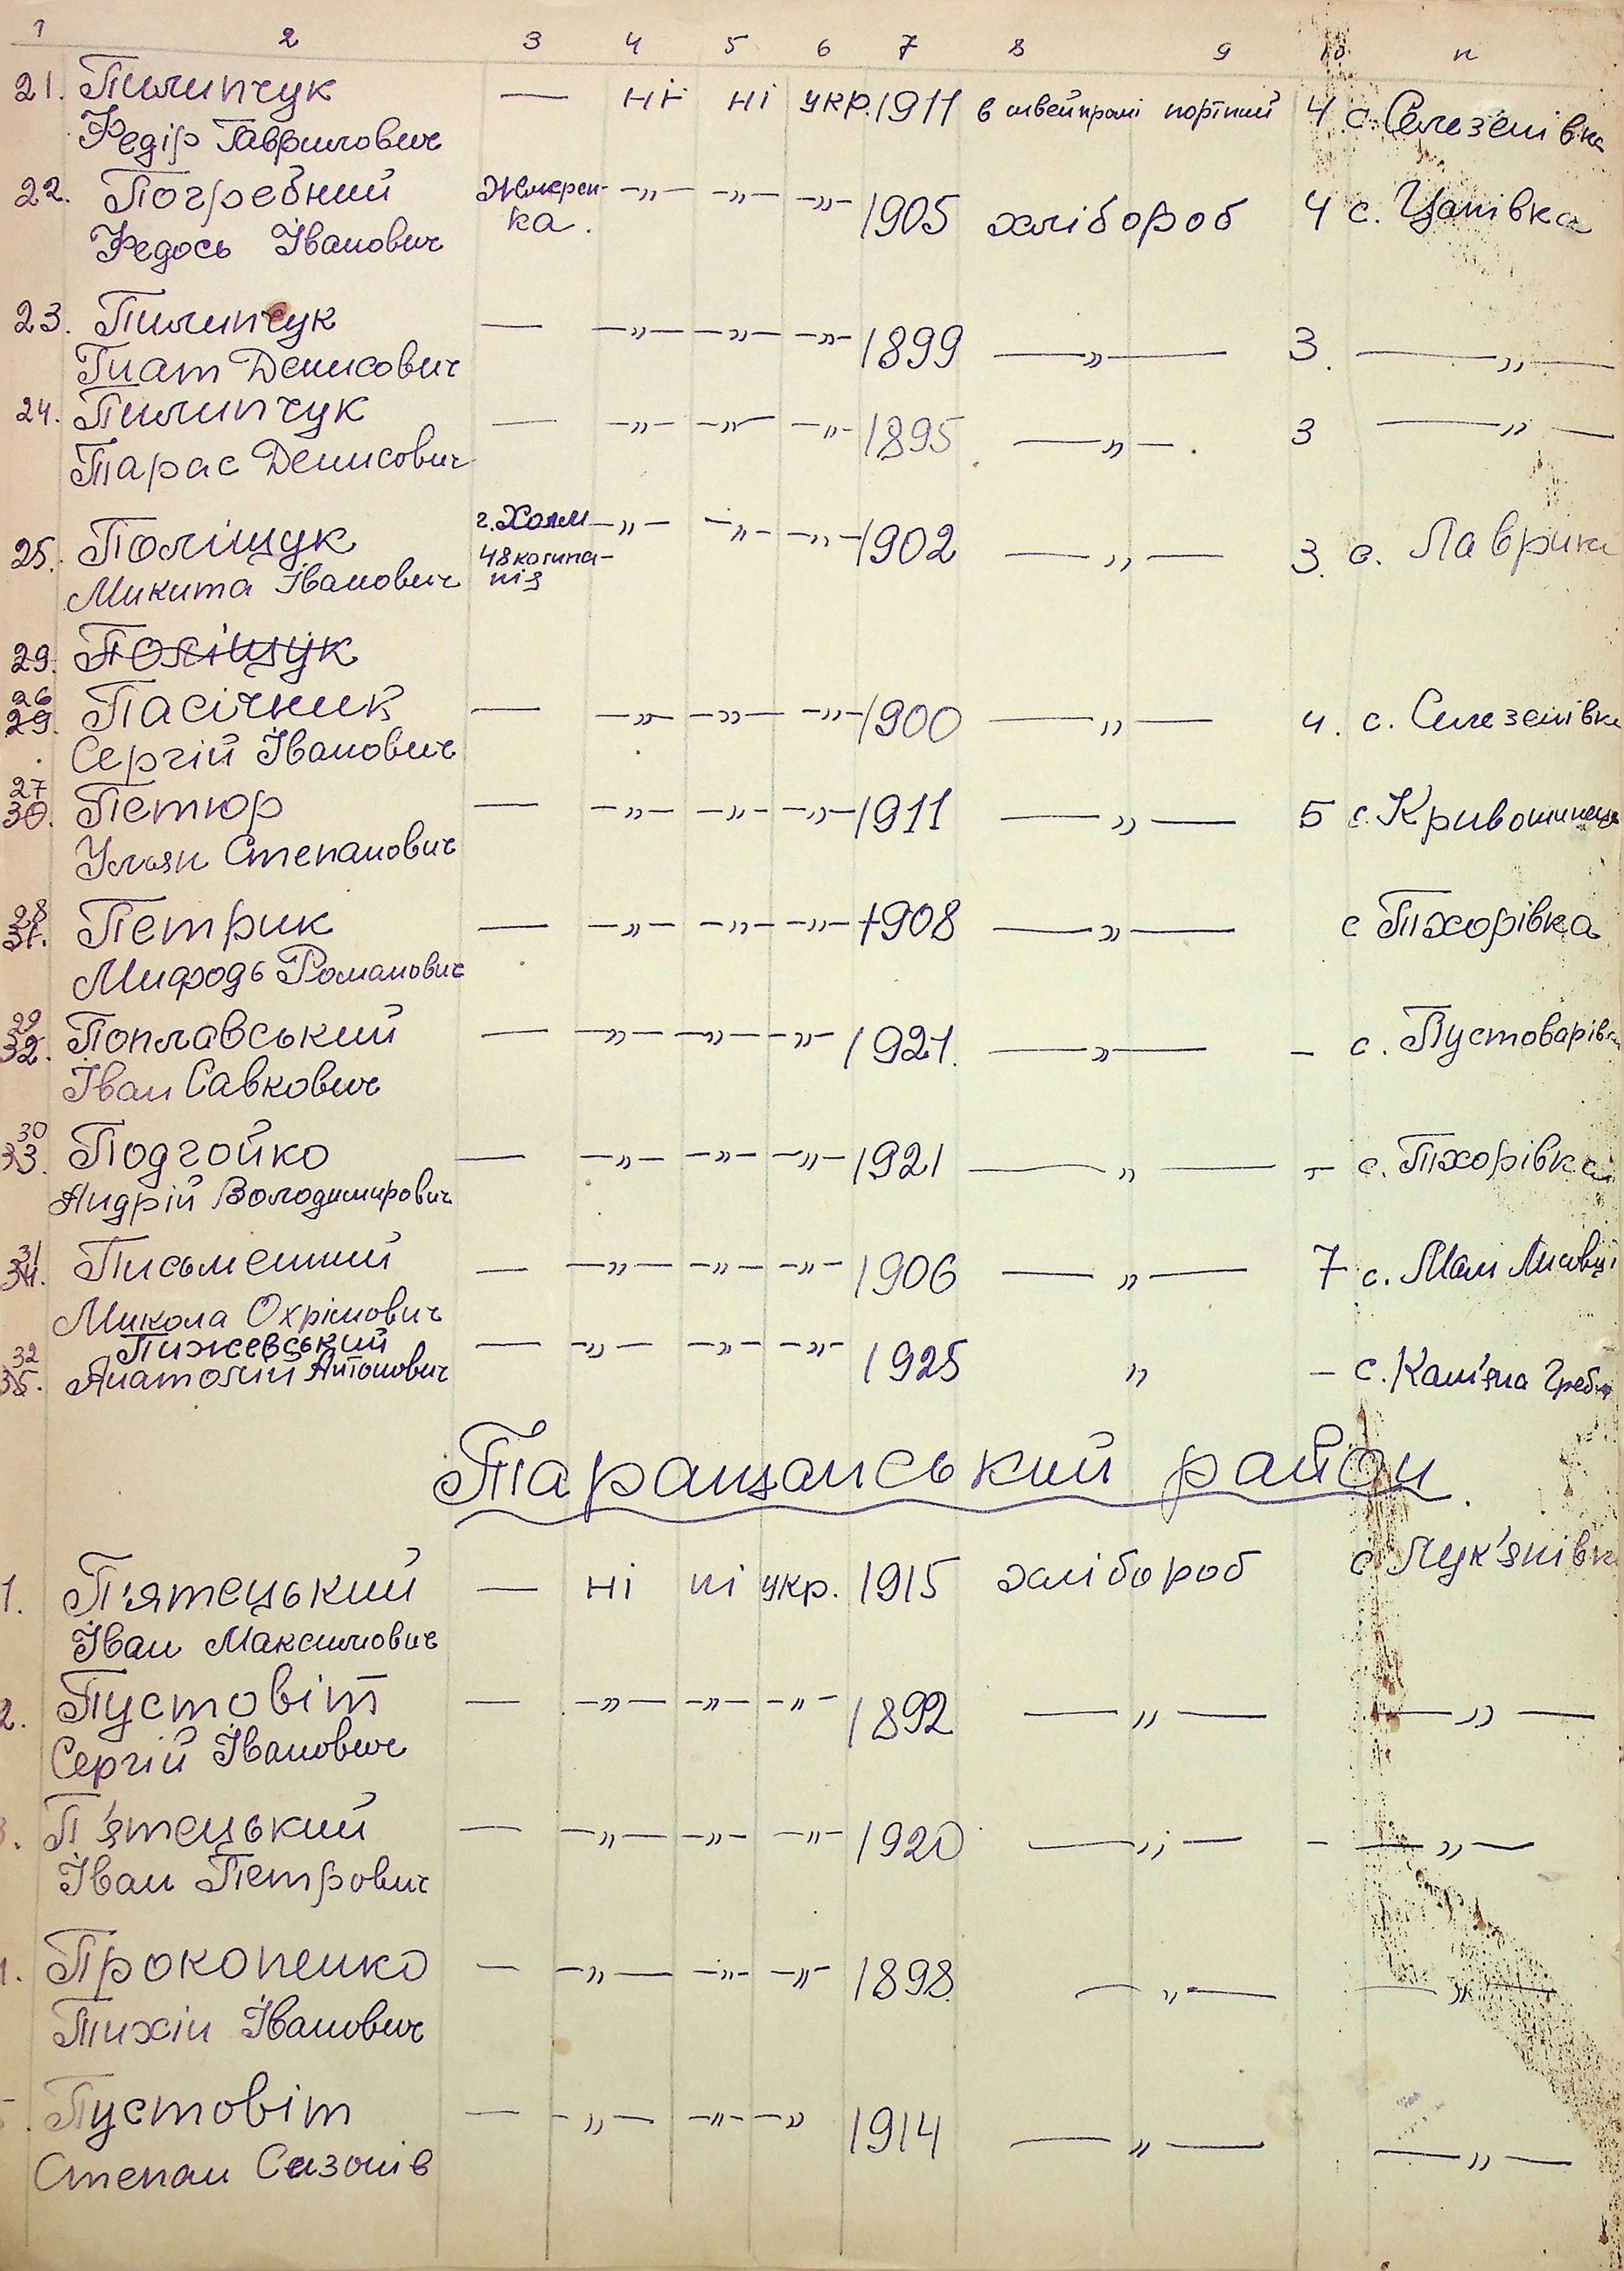 1 2 3 4 5 6 7 8 9 10 11
21. Пилипчук — ні ні укр. 1911 в швейпромі портний 4 с. Селезенівка
Федір Гаврилович
22. Погребний Жмерен- —„— —„— —„— 1905 хлібороб 4 с. Цапівка
Федось Іванович ка.
23. Пилипчук — —„— —„— —„— 1899 —„— 3. —„—
Гнат Денисович
24. Пилипчук — —„— —„— —„— 1895 —„— 3 —„—
Тарас Денисович
25. Поліщук г. Холм —„— —„— —„— 1902 —„— 3. с. Лаврики
Микита Іванович 48 компа-
нія
29. Поліщук
26 29. Пасічник — —„— —„— —„— 1900 —„— 4. с. Селезенівка
Сергій Іванович
27 30. Петюр — —„— —„— —„— 1911 —„— 5 с. Кривошиинці
Ульян Степанович
28 31. Петрик — —„— —„— —„— 1908 —„— с Тхорівка
Мифодь Романович
29 32. Поплавський — —„— —„— —„— 1921. —„— – с. Пустоварівка
Іван Савкович
30 33. Подгойко — —„— —„— —„— 1921 —„— – с. Тхорівка
Андрій Володимирович
31 34. Письменний — —„— —„— —„— 1906 —„— 7 с. Малі Лисівці
Микола Охрімович
32 35. Пижевський — —„— —„— —„— 1925 „ – с. Кам'яна Гребля
Анатолій Антонович
Таращанський район.
1. П'ятецький — ні ні укр. 1915 хлібороб с Лук'янівка
Іван Максимович
2. Пустовіт — —„— —„— —„— 1892 —„— —„—
Сергій Іванович
3. П'ятецький — —„— —„— —„— 1920 —„— – —„—
Іван Петрович
4. Прокопенко — —„— —„— —„— 1898 —„— —„—
Тихін Іванович
5. Пустовіт — —„— —„— —„— 1914 —„— —„—
Степан Сазонів